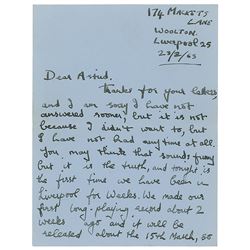 174 MACKETS
LANE
WOOLTON.
Liverpool 25
23/2/63
Dear Astrid.
Thanks for your letters,
and I am sorry I have not
answered sooner, but it is not
because I didn't want to, but
I have not had any time at all.
You may think that sounds funny
but it is the truth, and tonight is
the first time we have been in
Liverpool for weeks. We made our
first long-playing record about 2
weeks ago and it will be
released about the 15th March, so